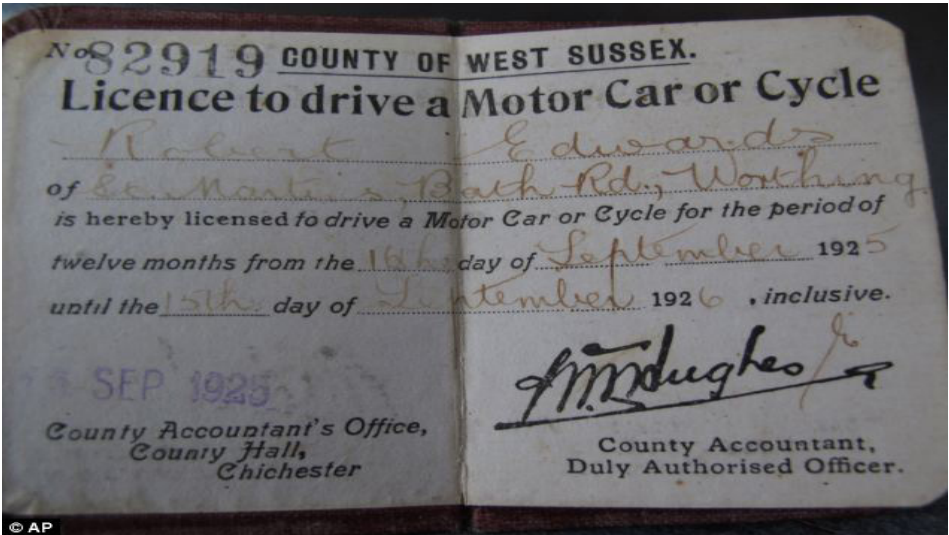 No. 82919 COUNTY OF WEST SUSSEX.
Licence to drive a Motor Car or Cycle
Robert Edwards
of Bath Rd., Worthing
is hereby licensed to drive a Motor Car or Cycle for the period of
twelve months from the 16th day of September 1925
until the 15th day of September 1926, inclusive.
SEP 1925
County Accountant's Office,
County Hall,
Chichester
Hughes
County Accountant,
Duly Authorised Officer.
© AP